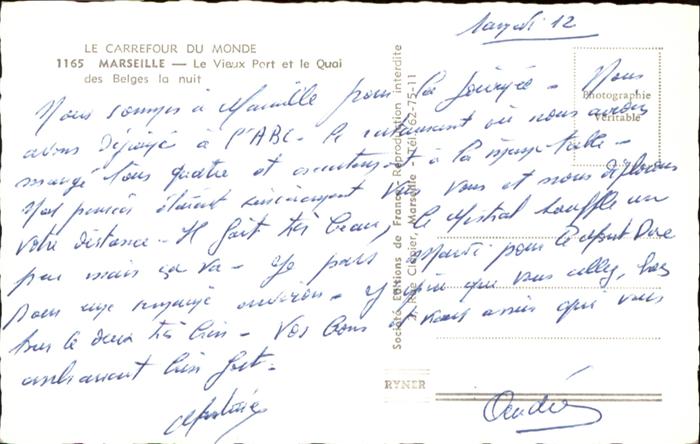 Samedi 12
LE CARREFOUR DU MONDE
1165 MARSEILLE — Le Vieux Port et le Quai
des Belges la nuit
Photographie
Véritable
Société Editions de France Reproduction interdite
5, Rue Clapier, Marseille - Tél. 62-75-11
Nous sommes à Marseille pour la journée - Nous
avons déjeuné à l'ABC - le restaurant où nous avions
mangé tous quatre et exactement à la même table -
Nos pensées étaient sincèrement vers vous et nous déplorons
votre distance - Il fait très beau, le Mistral souffle un
peu mais ça va - Je pars Mardi pour le Mont Dore
pour une environ - J'espère que vous allez, tous
tous les deux très bien - Vos bons et vous aussi qui vous
embrassent bien fort -
André
RYNER